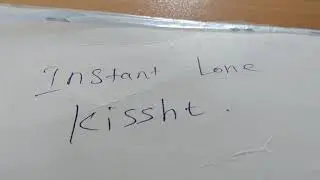 Instant Lone
Kissht.